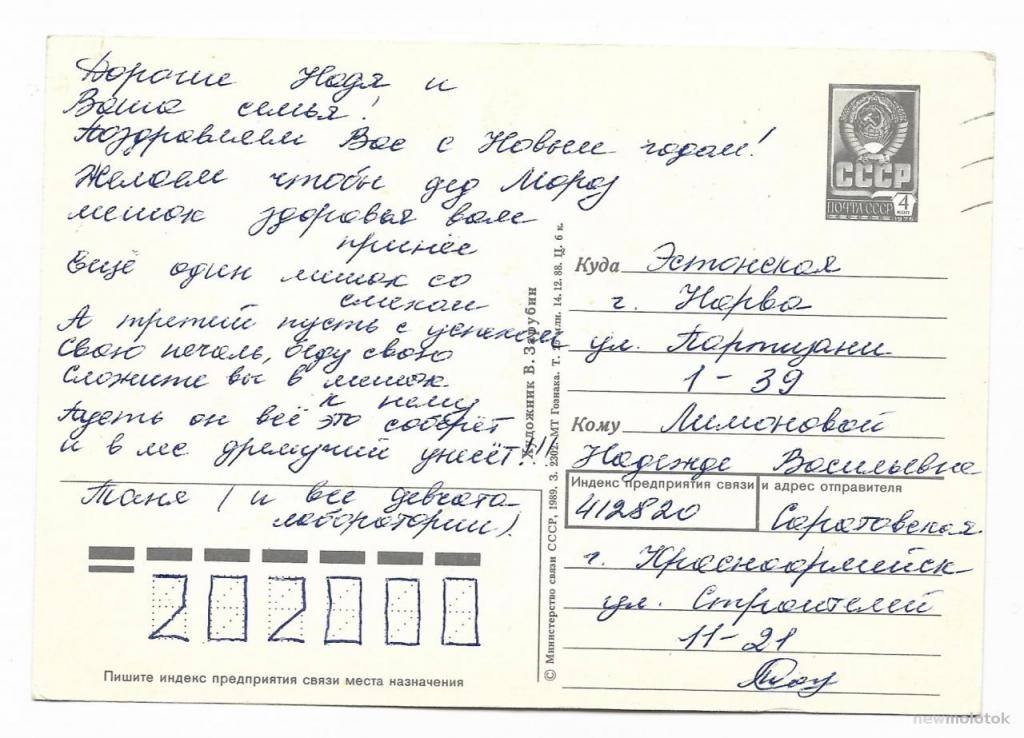 Дорогие Надя и
Ваша семья!
Поздравляем Вас с Новым годом!
Желаем чтобы дед Мороз
мешок здоровья вам
принёс
Ещё один мешок со
смехом
А третий пусть с успехом
Свою печаль, беду свою
Сложите вы в мешок
к нему
Пусть он всё это соберёт
и в лес дремучий унесёт!!!
Таня (и все девчата
лаборатории).
202000
Пишите индекс предприятия связи места назначения
Художник В. Зарубин
© Министерство связи СССР, 1989. З. 2302. МТ Гознака. Т. млн. 14.12.88. Ц. 6 к.
СССР
ПОЧТА СССР 4 КОП
1976
Куда Эстонская
г. Нарва
ул. Партизани
1-39
Кому Лимоновой
Надежде Васильевне
Индекс предприятия связи и адрес отправителя
412820 Саратовская
г. Красноармейск
ул. Строителей
11-21
newmolotok